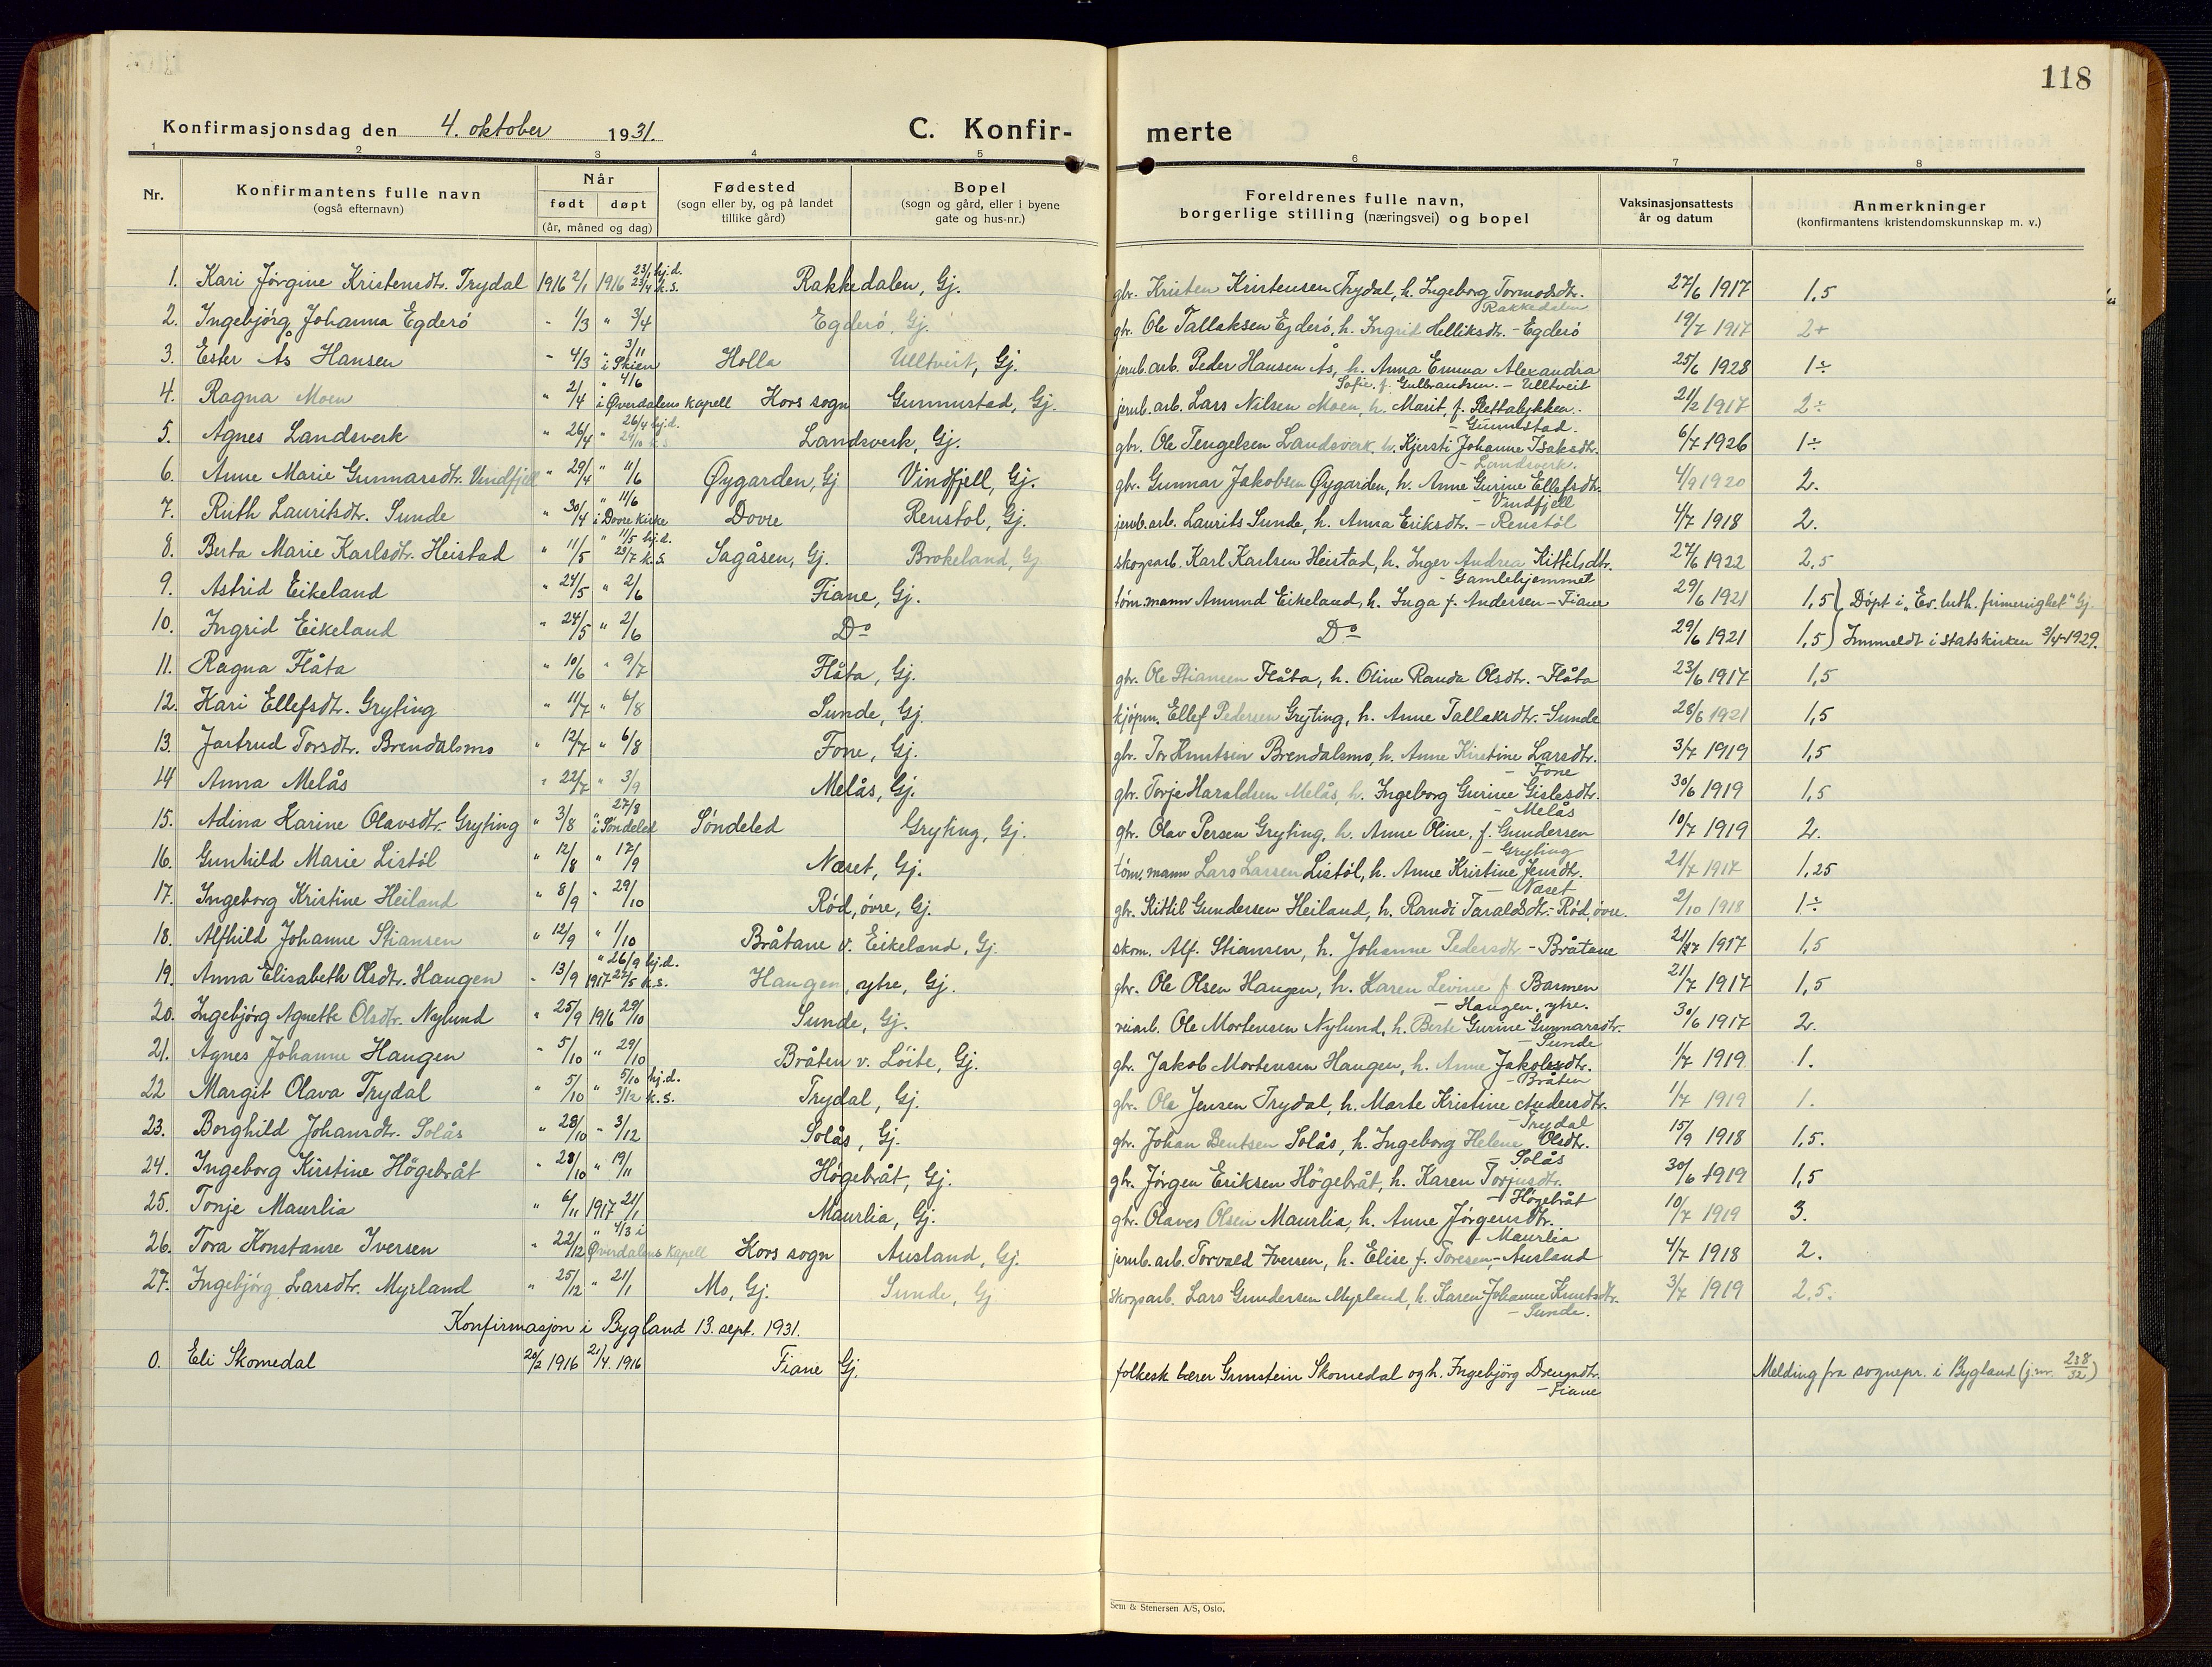 118
Konfirmasjonsdag den 4. oktober 1931. C. Konfir- merte
1 2 3 4 5 6 7 8
Nr. Konfirmantens fulle navn (også efternavn) Når født døpt (år, måned og dag) Fødested (sogn eller by, og på landet tillike gård) Bopel (sogn og gård, eller i byene gate og hus-nr.) Foreldrenes fulle navn, borgerlige stilling (næringsvei) og bopel Vaksinasjonsattests år og datum Anmerkninger (konfirmantens kristendomskunnskap m. v.)
1. Kari Jørgine Kristensdtr. Trydal 1916 2/1 1916 23/1 hj.d. 23/4 k.s. Rakkedalen, Gj. gbr. Kristen Kristensen Trydal, h. Ingeborg Tormodsdtr. Rakkedalen 27/6 1917 1,5
2. Ingebjørg Johanna Egderö - 1/3 " 3/4 Egderö, Gj. gbr. Ole Tallaksen Egderö, h. Ingrid Helliksdtr. - Egderö 19/7 1917 2+
3. Ester Ås Hansen - 4/3 " 3/11 i Skien Holla Ulltveit, Gj. jernb.arb. Peder Hansen Ås, h. Anna Emma Alexandra Sofie, f. Gulbrandsen. - Ulltveit 25/6 1928 1÷
4. Ragna Moen " 2/4 " 4/6 i Øverdalens Kapell Kors sogn Gunnustad, Gj. jernb.arb. Lars Nilsen Moen, h. Marit, f. Slettaløkken. - Gunnustad. 21/2 1917 2÷
5. Agnes Landsverk " 26/4 " 26/4 hj.d. 29/10 k.s. Landsverk, Gj. gbr. Ole Tengelsen Landsverk, h. Kjersti Johanne Isaksdtr. - Landsverk. 6/7 1926 1÷
6. Anne Marie Gunnarsdtr. Vindfjell " 29/4 " 11/6 Øygarden, Gj Vindfjell, Gj. gbr. Gunnar Jakobsen Øygarden, h. Anne Gurine Ellefsdtr. - Vindfjell 4/9 1920 2.
7. Ruth Lauritsdtr. Sunde " 30/4 " 11/6 i Dovre Kirke Dovre Renstöl, Gj. jernb.arb. Laurits Sunde, h. Anna Eriksdtr. - Renstöl 4/7 1918 2.
8. Berta Marie Karlsdtr. Heistad " 11/5 " 11/5 hj.d. 23/7 k.s. Sagåsen, Gj. Brokeland, Gj skogsarb. Karl Karlsen Heistad, h. Inger Andrea Kittilsdtr. - Gamlehjemmet 27/6 1922 2,5
9. Astrid Eikeland " 24/5 " 2/6 Fiane, Gj. töm.mann Amund Eikeland, h. Inga f. Andersen - Fiane 29/6 1921 1,5 } Döpt i „Ev. luth. frimenighet" Gj.
10. Ingrid Eikeland " 24/5 " 2/6 Do Do 29/6 1921 1,5 } Innmeldt i statskirken 3/4-1929.
11. Ragna Flåta " 10/6 " 9/7 Flåta, Gj. gbr. Ole Stiansen Flåta, h. Oline Randa Olsdtr. - Flåta 23/6 1917 1,5
12. Kari Ellefsdtr. Gryting " 11/7 " 6/8 Sunde, Gj. kjöpm. Ellef Pedersen Gryting, h. Anne Tallaksdtr. - Sunde 28/6 1921 1,5
13. Jartrud Torsdtr. Brendalsmo " 12/7 " 6/8 Fone, Gj. gbr. Tor Knutsen Brendalsmo, h. Anne Kirstine Larsdtr. - Fone 3/7 1919 1,5
14 Anna Melås " 22/7 " 3/9 Melås, Gj. gbr. Torje Haraldsen Melås, h. Ingeborg Gurine Gislesdtr. - Melås 30/6 1919 1,5
15. Adina Karine Olavsdtr. Gryting " 3/8 " 27/8 i Söndeled Söndeled Gryting, Gj. gbr. Olav Persen Gryting, h. Anne Oline, f. Gundersen - Gryting 10/7 1919 2.
16. Gunhild Marie Listöl " 12/8 " 17/9 Næset, Gj. töm.mann Lars Larsen Listöl, h. Anne Kristine Jensdtr. - Næset 21/7 1917 1,25
17. Ingeborg Kristine Heiland " 8/9 - 29/10 Röd, övre, Gj. gbr. Kittil Gundersen Heiland, h. Randi Taraldsdtr. - Röd, övre. 2/10 1918 1÷
18. Alfhild Johanne Stiansen " 12/9 " 1/10 Bråtane v. Eikeland, Gj. skom. Alf. Stiansen, h. Johanne Pedersdtr. - Bråtane 21/7 1917 1,5
19. Anna Elisabeth Olsdtr. Haugen - 13/9 " 26/9 hj.d. 1917 27/5 k.s. Haugen, ytre, Gj. gbr. Ole Olsen Haugen, h. Karen Levine f. Barmen - Haugen, ytre. 21/7 1917 1,5
20. Ingebjörg Agnethe Olsdtr. Nylund " 25/9 1916 29/10 Sunde, Gj. veiarb. Ole Mortensen Nylund, h. Berte Gurine Gunnarsdtr. - Sunde 30/6 1917 2.
21. Agnes Johanne Haugen - 5/10 " 29/10 Bråten v. Löite, Gj. gbr. Jakob Mortensen Haugen, h. Anne Jakobsdtr. - Bråten 1/7 1919 1.
22 Margit Olava Trydal " 5/10 " 5/10 hj.d. 3/12 k.s. Trydal, Gj. gbr. Ole Jensen Trydal, h. Marte Kristine Andersdtr. - Trydal 1/7 1919 1.
23. Borghild Johansdtr. Solås " 28/10 - 3/12 Solås, Gj. gbr. Johan Bentsen Solås, h. Ingeborg Helene Olsdtr. - Solås 15/9 1918 1,5.
24. Ingeborg Kirstine Högebråt - 28/10 " 19/11 Högebråt, Gj. gbr. Jörgen Eriksen Högebråt, h. Karen Torjusdtr. - Högebråt 30/6 1919 1,5
25. Tonje Maurlia " 6/11 1917 21/1 Maurlia, Gj. gbr. Olaves Olsen Maurlia, h. Anne Jörgensdtr. - Maurlia 10/7 1919 3.
26. Tora Konstanse Iversen - 22/12 " 4/3 i Øverdalens Kapell Kors sogn Ausland, Gj. jernb.arb. Torvald Iversen, h. Elise f. Toresen, - Ausland 4/7 1918 2.
27. Ingebjörg Larsdtr. Myrland " 25/12 " 21/1 Mo, Gj. Sunde, Gj skogsarb. Lars Gundersen Myrland, h. Karen Johanne Knutsdtr. - Sunde. 3/7 1919 2,5.
Konfirmasjon i Bygland 13. sept. 1931.
0. Eli Skomedal 20/2 1916 21/4. 1916 Fiane Gj. folkesk. lærer Gunstein Skomedal og h. Ingebjörg Drengsdtr. - Fiane Melding fra sognepr. i Bygland (j.nr. 238/32)
Sem & Stenersen A/S, Oslo.